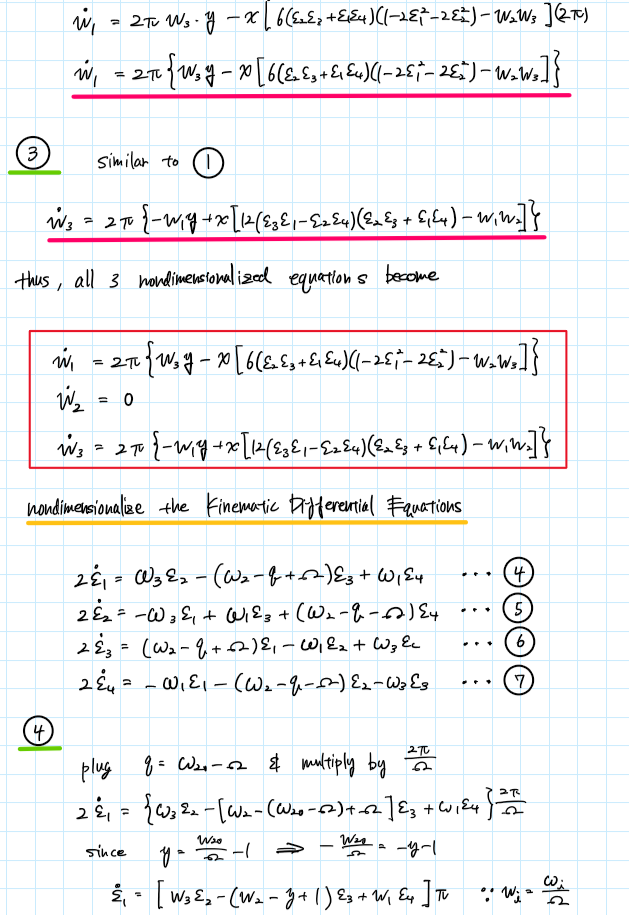 ẇ₁ = 2π w₃·y − x[6(ε₂ε₃+ε₁ε₄)(1−2ε₁²−2ε₂²)−w₂w₃](2π)
ẇ₁ = 2π{w₃y − x[6(ε₂ε₃+ε₁ε₄)(1−2ε₁²−2ε₂²)−w₂w₃]}
③ similar to ①
ẇ₃ = 2π{−w₁y+x[12(ε₃ε₁−ε₂ε₄)(ε₂ε₃+ε₁ε₄)−w₁w₂]}
thus, all 3 nondimensionalized equations become
ẇ₁ = 2π{w₃y − x[6(ε₂ε₃+ε₁ε₄)(1−2ε₁²−2ε₂²)−w₂w₃]}
ẇ₂ = 0
ẇ₃ = 2π{−w₁y+x[12(ε₃ε₁−ε₂ε₄)(ε₂ε₃+ε₁ε₄)−w₁w₂]}
nondimensionalize the Kinematic Differential Equations
2ε̇₁ = ω₃ε₂−(ω₂−q+Ω)ε₃+ω₁ε₄ ··· ④
2ε̇₂ = −ω₃ε₁+ω₁ε₃+(ω₂−q−Ω)ε₄ ··· ⑤
2ε̇₃ = (ω₂−q+Ω)ε₁−ω₁ε₂+ω₃ε ··· ⑥
2ε̇₄ = −ω₁ε₁−(ω₂−q−Ω)ε₂−ω₃ε₃ ··· ⑦
④
plug q = ω₂₀−Ω & multiply by 2π/Ω
2ε̇₁ = {ω₃ε₂−[ω₂−(ω₂₀−Ω)+Ω]ε₃+ω₁ε₄}2π/Ω
since y = ω₂₀/Ω −1 ⇒ −ω₂₀/Ω = −y−1
ε̇₁ = [w₃ε₂−(w₂−y+1)ε₃+w₁ε₄]π ∵ wᵢ = ωᵢ/Ω